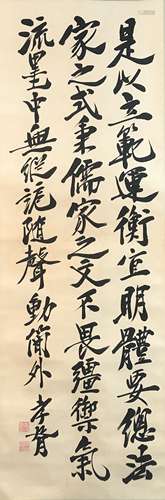 是以立範運衡宜明體要總法
家之式秉儒家之文不畏彊禦氣
流墨中無縱詭隨聲動簡外 孝胥